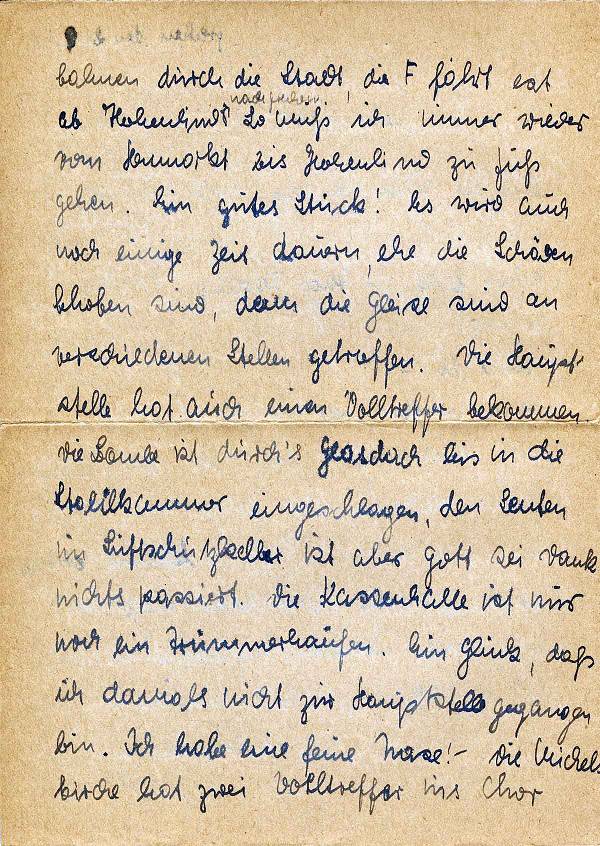 bahnen durch die Stadt, die F fährt erst
ab Hohenlind. So muß ich immer wieder
vom Neumarkt bis Hohenlind zu fuß
gehen. Ein gutes Stück! Es wird auch
noch einige Zeit dauern, ehe die Schäden
behoben sind, denn die Gleise sind an
verschiedenen Stellen getroffen. Die Haupt-
stelle hat auch einen Volltreffer bekommen.
Die Bombe ist durch's Glasdach bis in die
Stahlkammer eingeschlagen, den Leuten
im Luftschutzkeller ist aber Gott sei Dank
nichts passiert. Die Kassenhalle ist nur
noch ein Trümmerhaufen. Ein Glück, daß
ich damals nicht zur Hauptstelle gegangen
bin. Ich habe eine feine Nase! - Die Michels
kirche hat zwei Volltreffer ins Chor